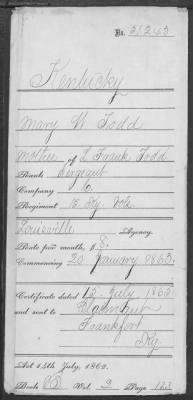 No. 51245
Kentucky
Mary W. Todd
Mother of S Frank Todd
Rank Sergeant
Company C.
Regiment 15 Ky. Vols
Louisville Agency.
Rate per month, $8.
Commencing 20 January 1863
Certificate dated 15 July 1865
and sent to
Frankfort
Ky.
Act 14th July, 1862.
Book D Vol. 2 Page 123